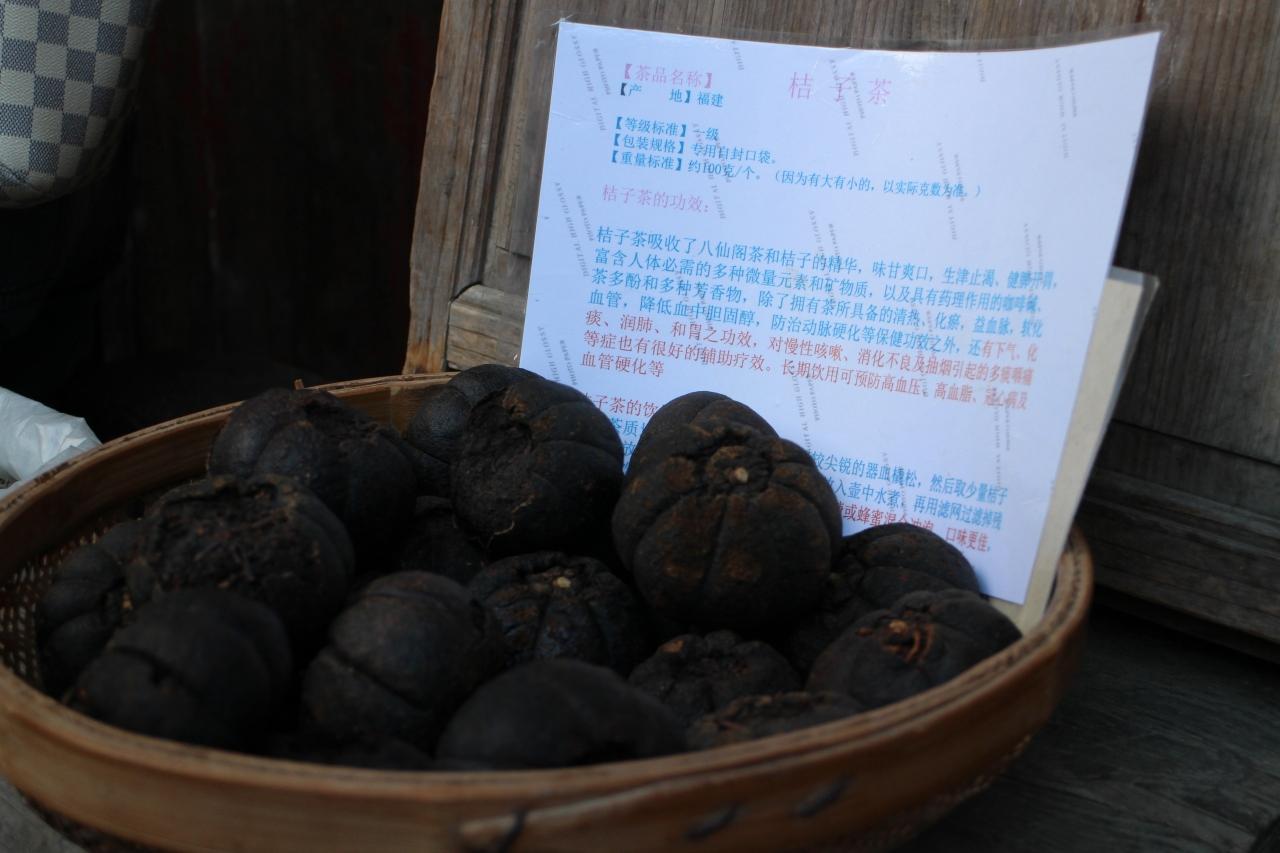 【茶品名称】 桔子茶
【产 地】福建
【等级标准】一级
【包装规格】专用自封口袋。
【重量标准】约100克/个。（因为有大有小的，以实际克数为准。）
桔子茶的功效：
桔子茶吸收了八仙阁茶和桔子的精华，味甘爽口，生津止渴、健脾开胃，
富含人体必需的多种微量元素和矿物质，以及具有药理作用的咖啡碱、
茶多酚和多种芳香物，除了拥有茶所具备的清热、化瘀，益血脉，软化
血管，降低血中胆固醇，防治动脉硬化等保健功效之外，还有下气、化
痰、润肺、和胃之功效，对慢性咳嗽、消化不良及抽烟引起的多痰咽痛
等症也有很好的辅助疗效。长期饮用可预防高血压、高血脂、冠心病及
血管硬化等
子茶的饮
茶质
较尖锐的器皿橇松，然后取少量桔子
放入壶中水煮，再用滤网过滤掉残
或蜂蜜混入冲泡，口味更佳。
DIGITAL HIGH GLOSSY
PHOTO PAPER